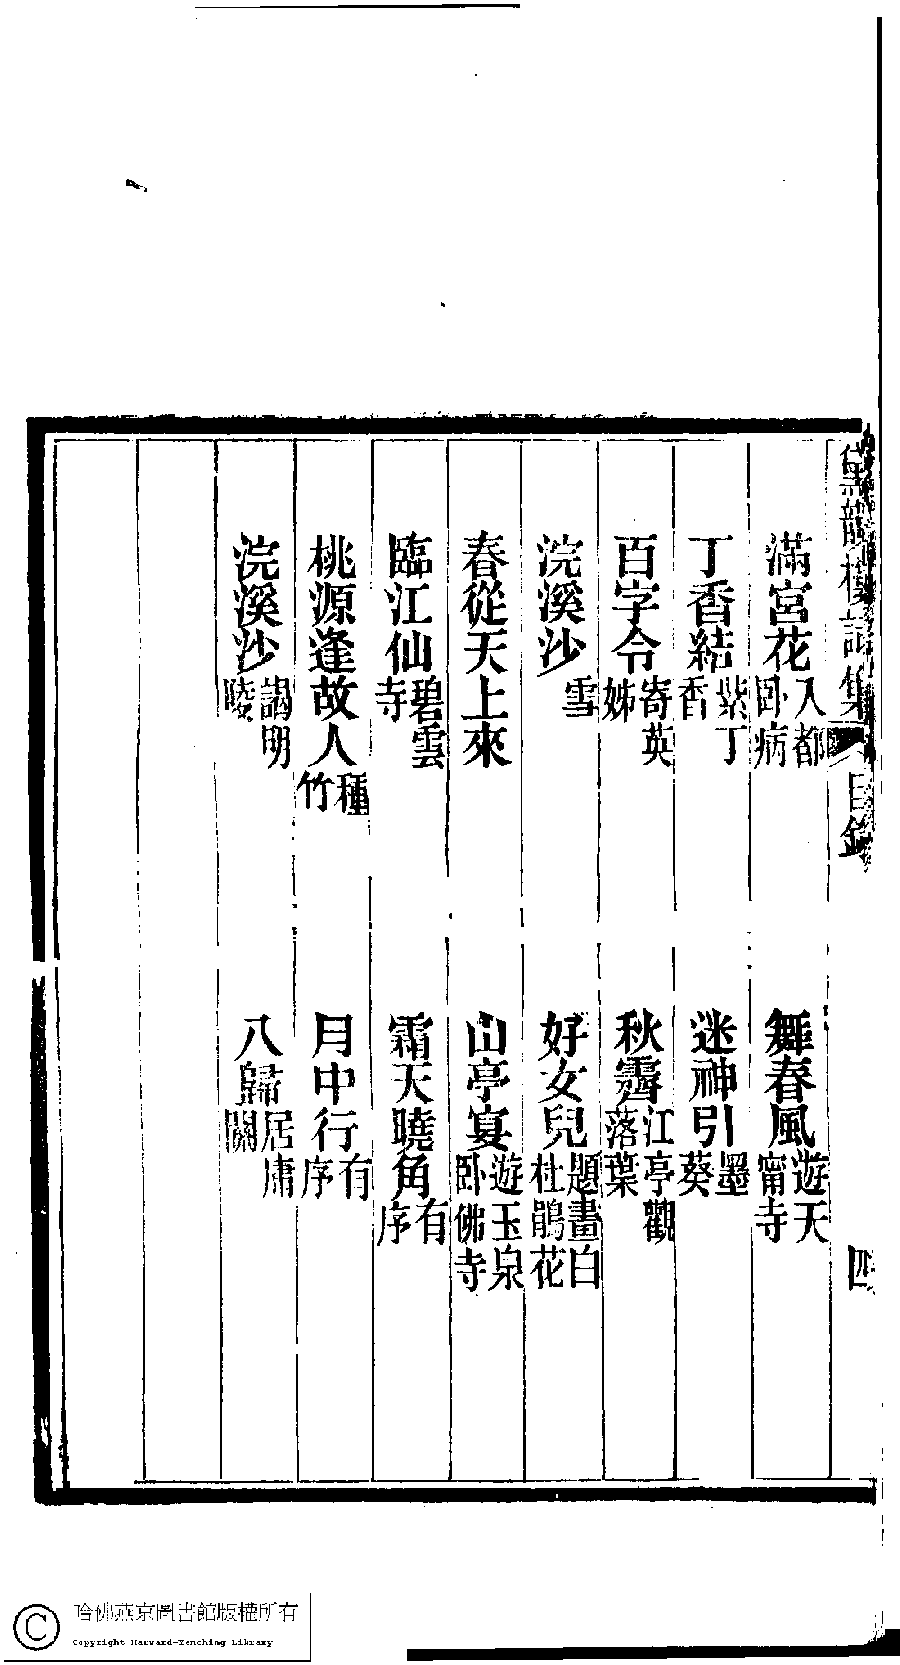 黛韻樓詞集 目錄 四
滿宮花 入都臥病 舞春風 遊天甯寺
丁香結 紫丁香 迷神引 墨葵
百字令 寄英姊 秋霽 江亭觀落葉
浣溪沙 雪 好女兒 題畫白杜鵑花
春從天上來 山亭宴 遊玉泉臥佛寺
臨江仙 碧雲寺 霜天曉角 有序
桃源逢故人 種竹 月中行 有序
浣溪沙 謁明陵 八歸 居庸關
哈佛燕京圖書館版權所有
Copyright Harvard-Yenching Library